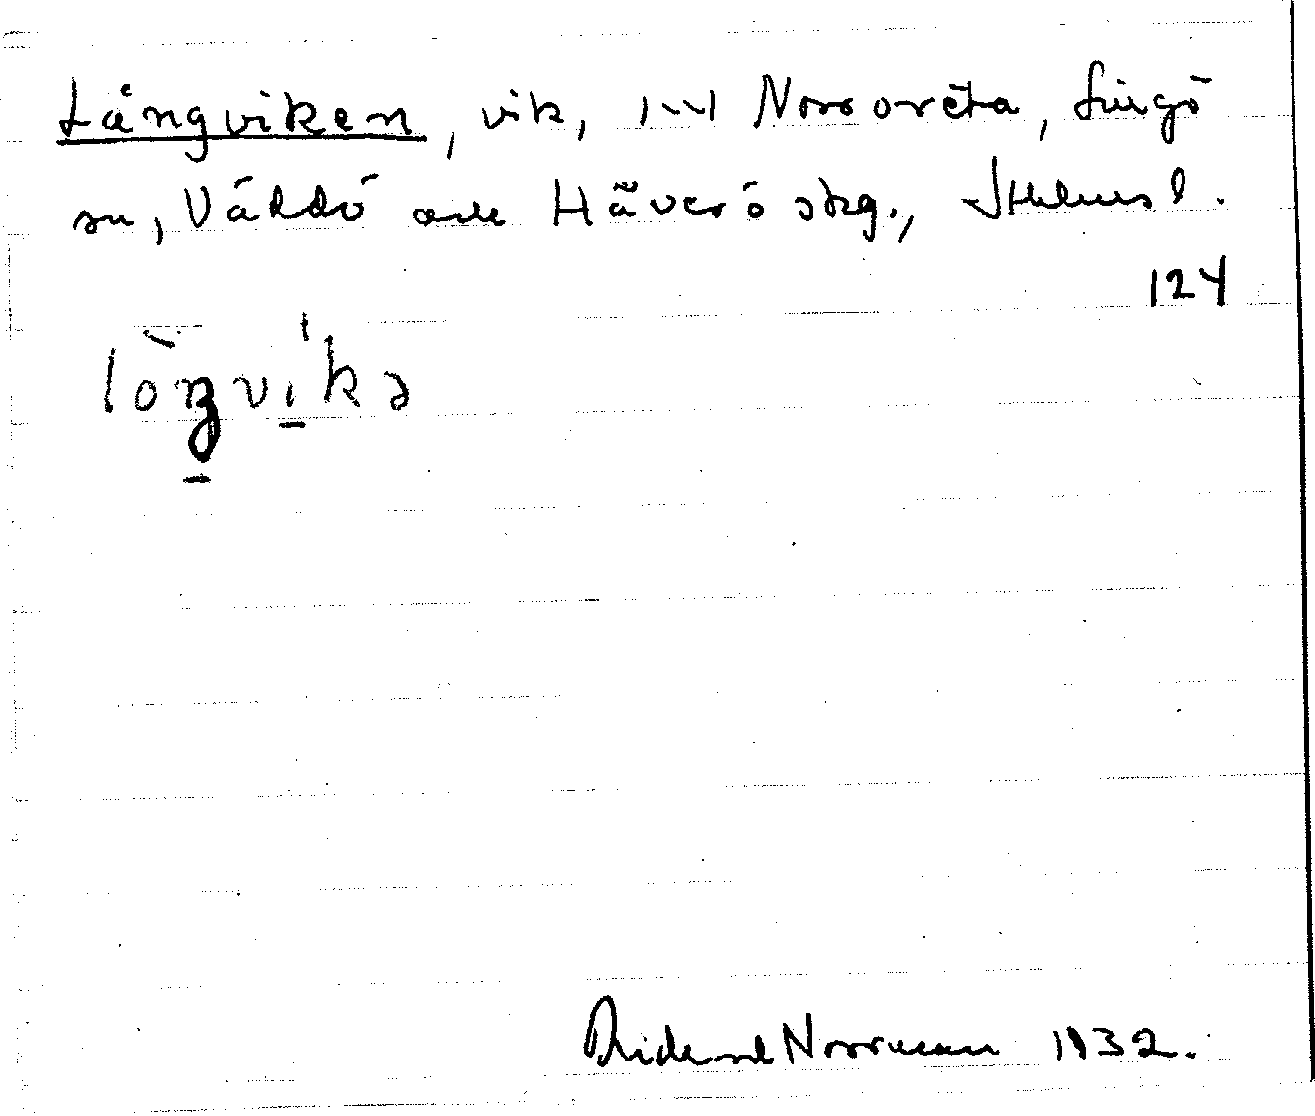 Långviken, vik, Norrorveta, Singö
sn, Väddö och Häverö skg., Sthlms l.
124
lòŋvi̱kə
Rideand Norrman 1932.